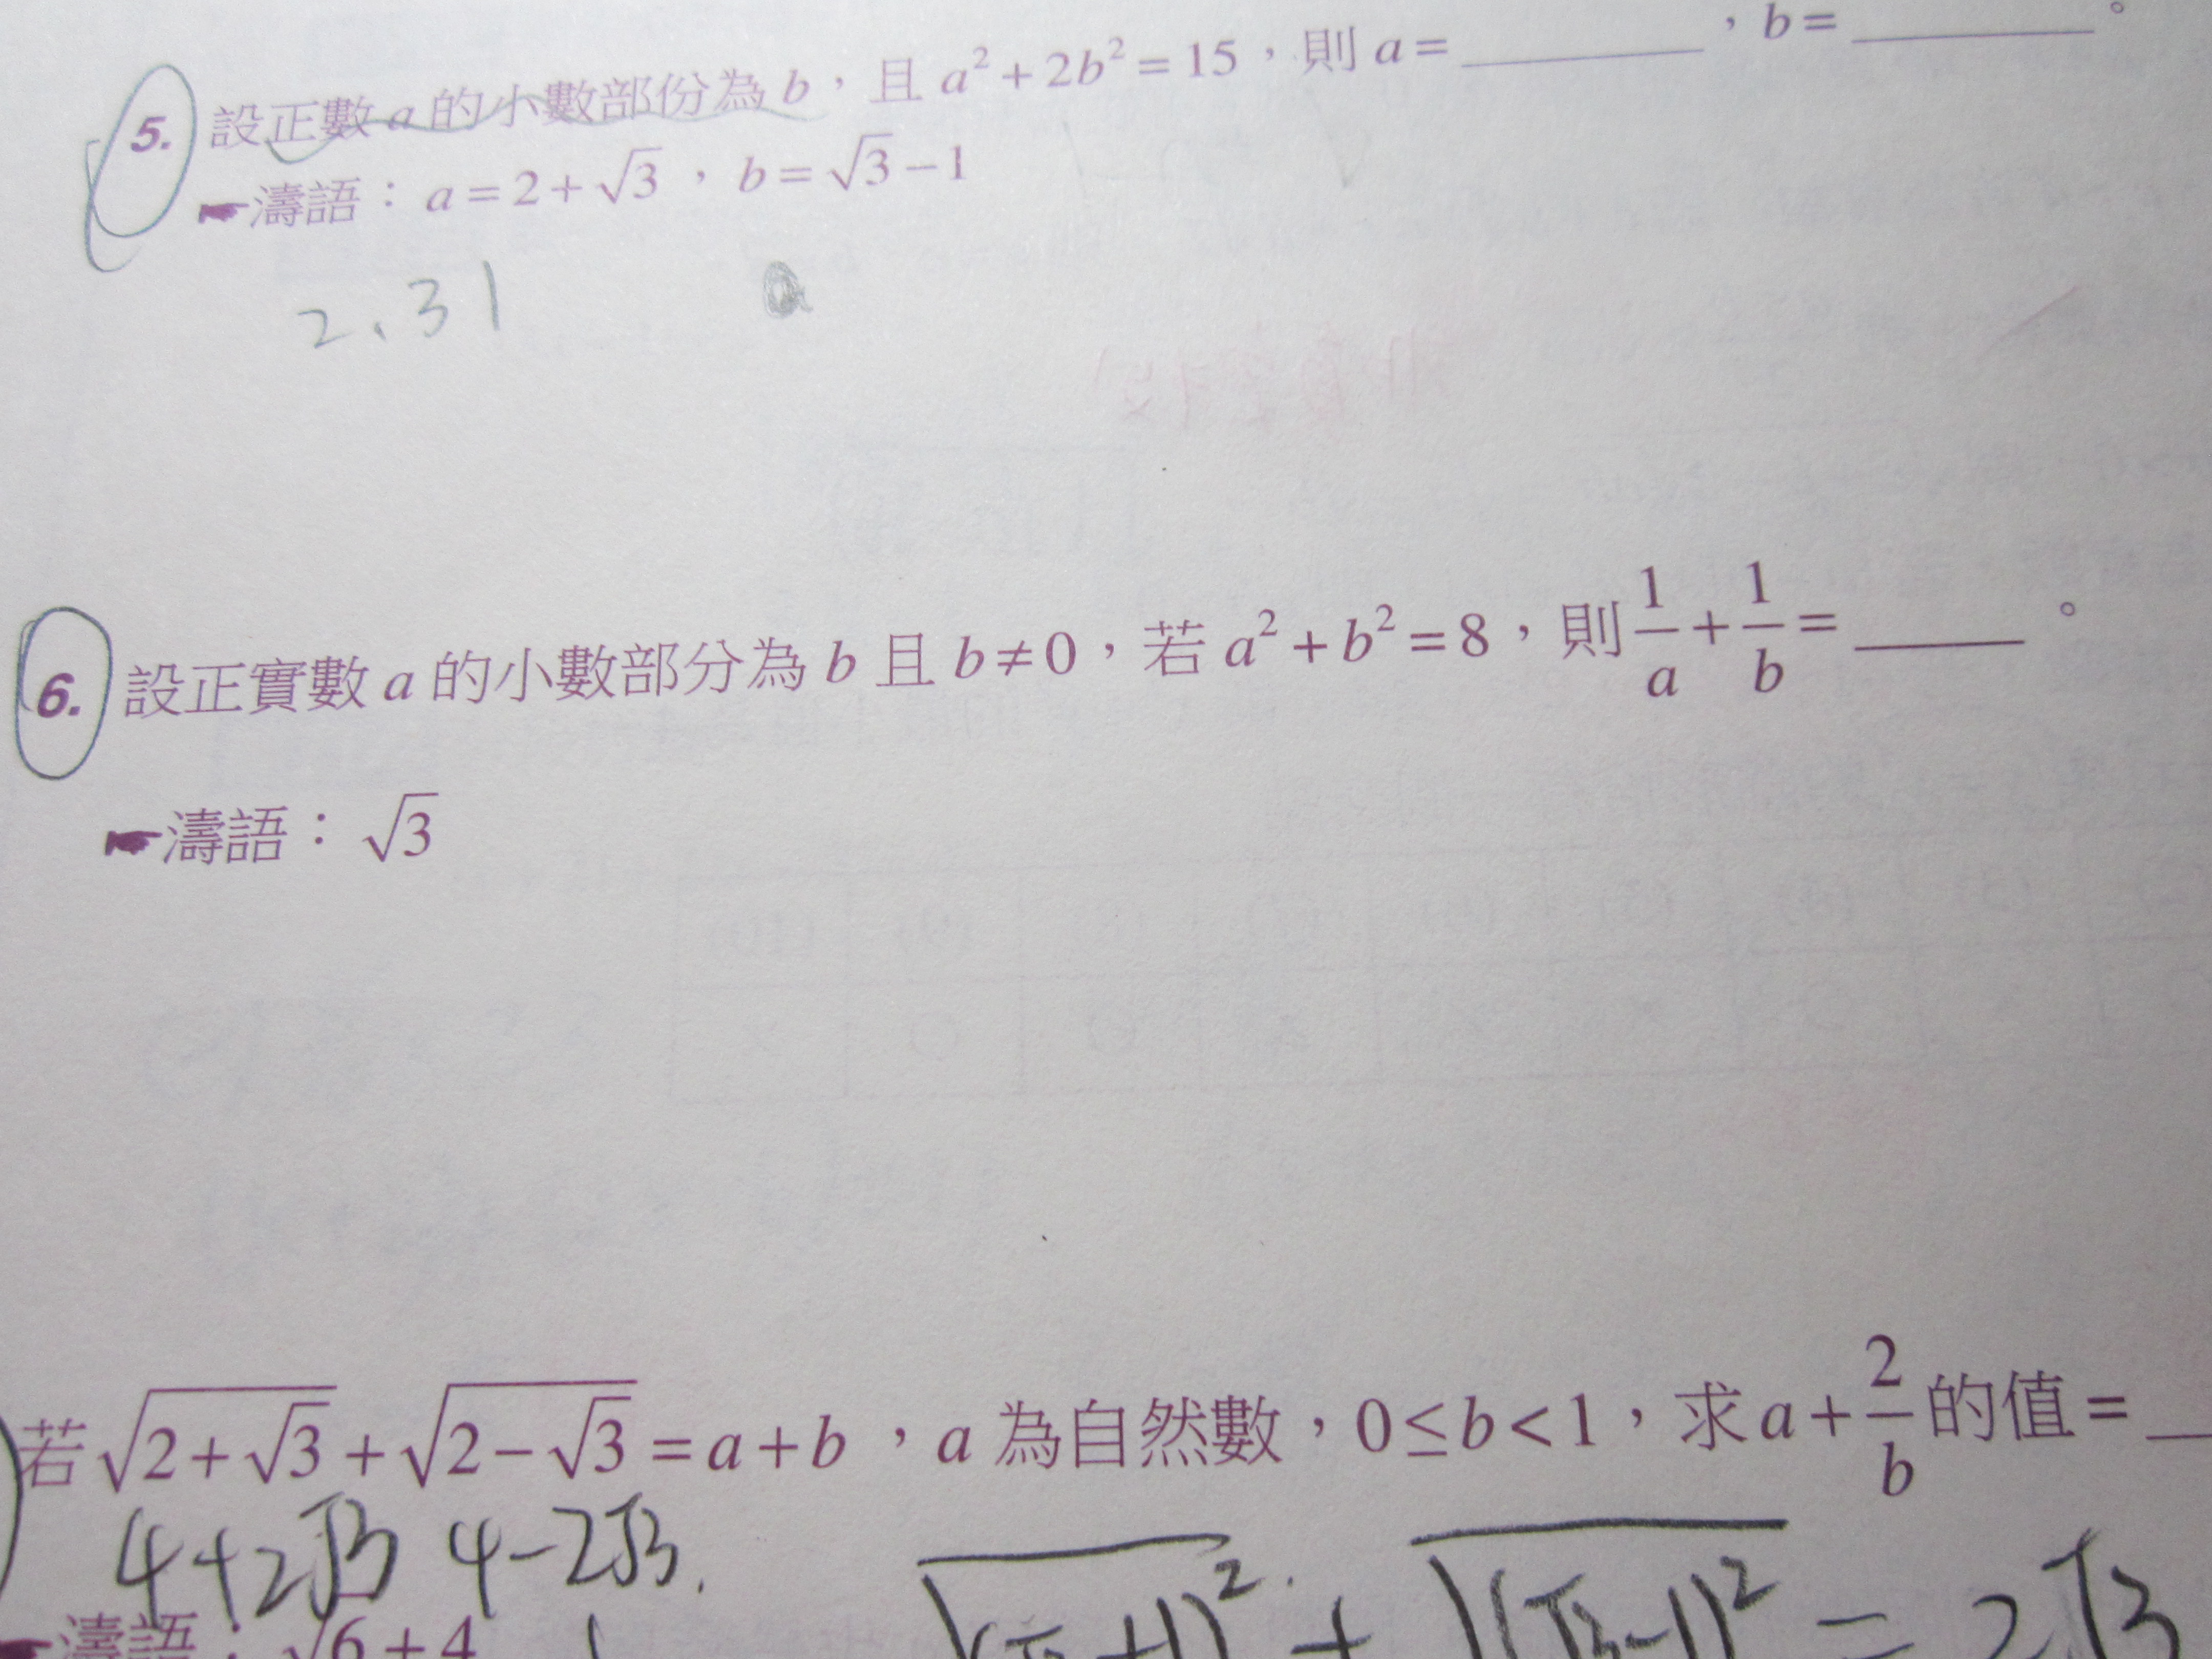 5. 設正數 a 的小數部份為 b，且 a² + 2b² = 15，則 a = ______，b = ______。
☛濤語：a = 2 + √3，b = √3 − 1
2.31
6. 設正實數 a 的小數部分為 b 且 b ≠ 0，若 a² + b² = 8，則 1/a + 1/b = ______。
☛濤語：√3
若 √(2+√3) + √(2−√3) = a + b，a 為自然數，0 ≤ b < 1，求 a + 2/b 的值 = __
4+2√3 4-2√3.
+1)² + √(√3-1)² = 2√3
濤語：√6 + 4